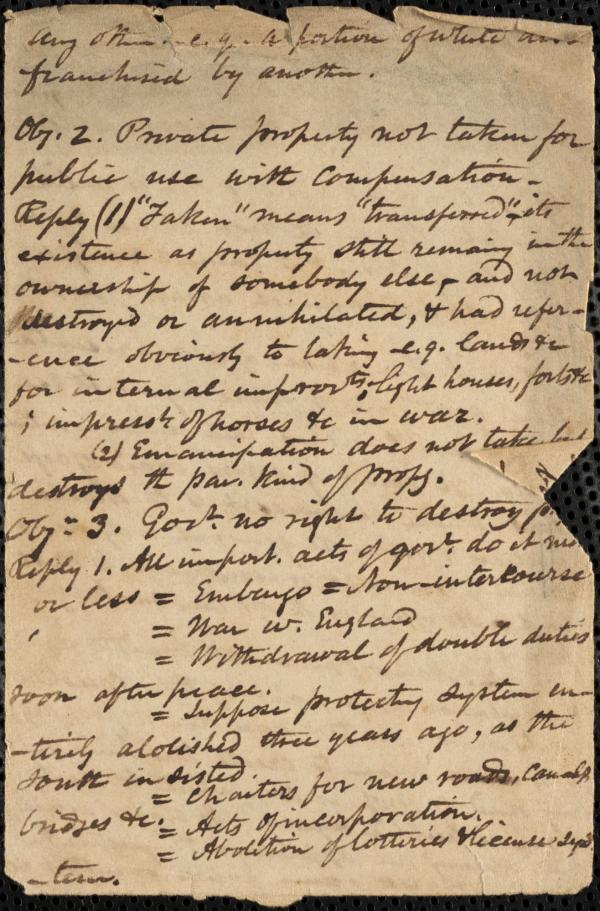 any other. e.g. a portion of white
franchised by another.
Obj. 2. Private property not taken for
public use with compensation –
Reply (1) "Taken" means "transferred", its
existence as property still remaing in the
ownership of somebody else, – and not
destroyed or annihilated, & had refer-
-ence obviously to taking e.g. lands &c
for internal improvts, light houses, forts &c
; impresst. of horses &c in war.
(2) Emancipation does not take but
destroys th par. kind of propy.
Obj. 3. Govt. no right to destroy
Reply 1. All import. acts of govt. do it more
or less = Embargo = Non-intercourse
= War w. England
= Withdrawal of double duties
soon after peace.
= Suppose protecting system en-
-tirely abolished three years ago, as the
South insisted.
= Charters for new roads, canals,
bridges &c.
= Acts of incorporation.
= Abolition of lotteries & license sys
-tem.